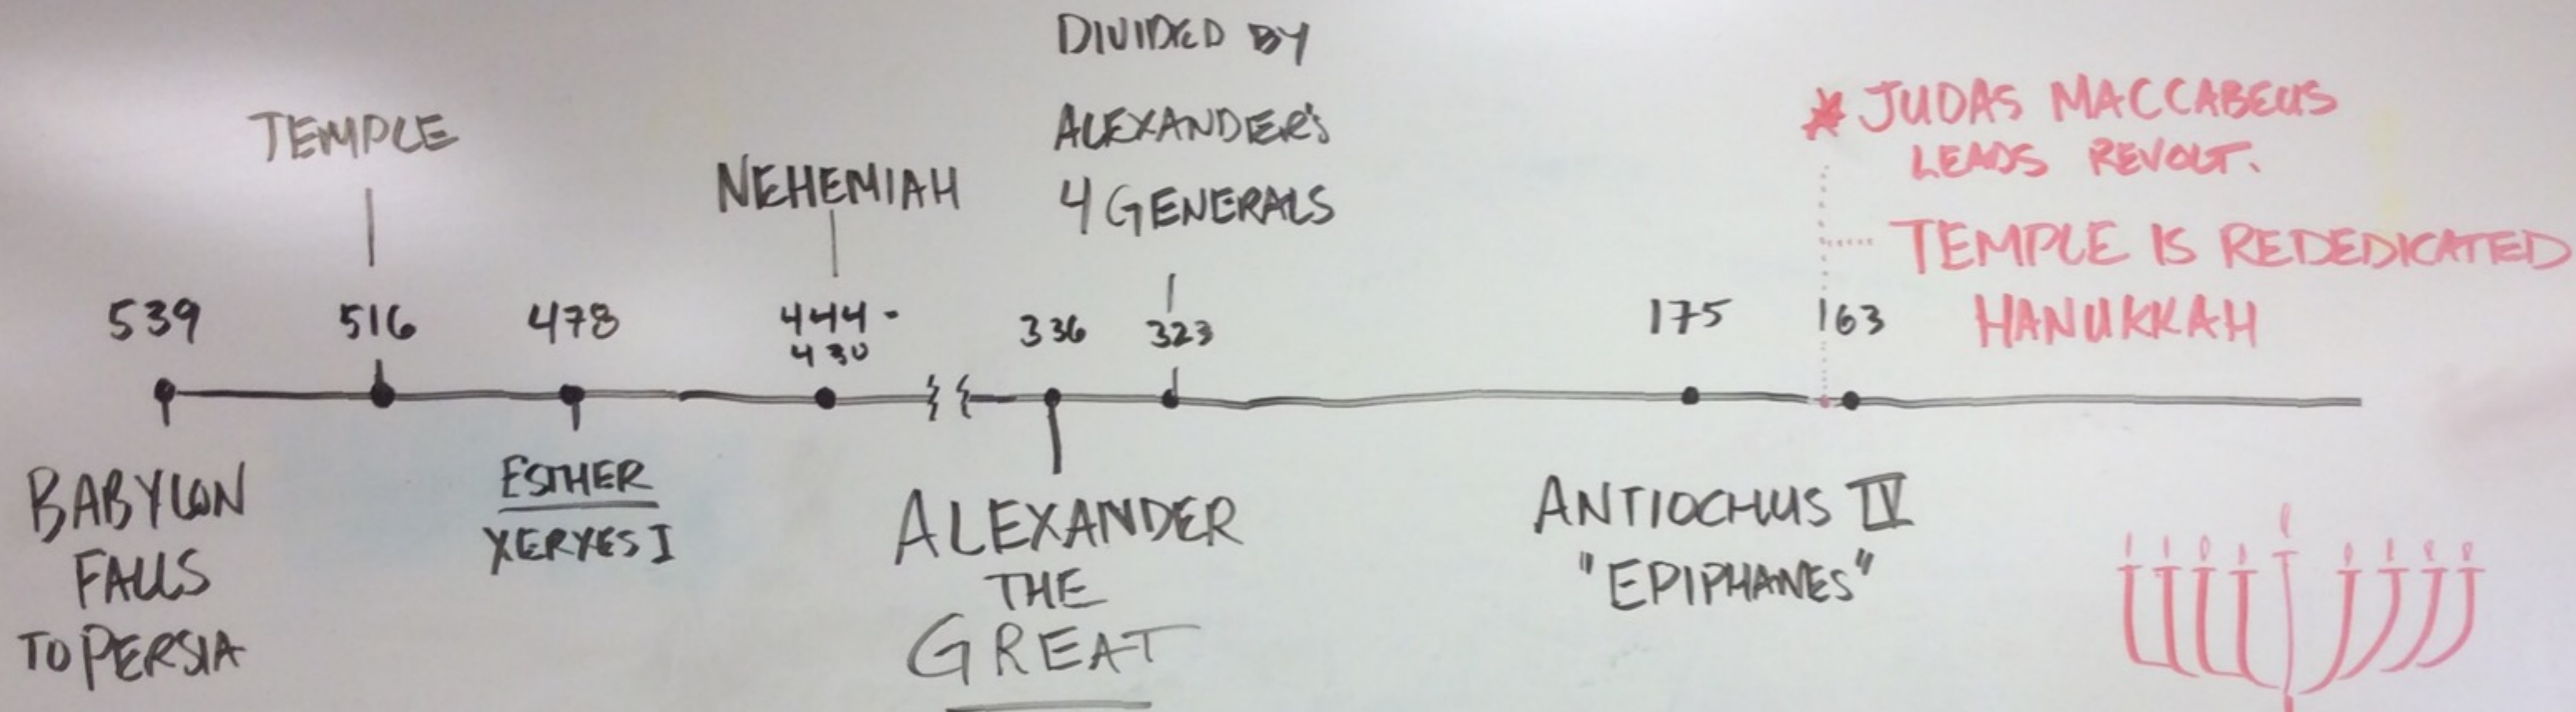 DIVIDED BY
ALEXANDER'S
4 GENERALS
TEMPLE
NEHEMIAH
* JUDAS MACCABEUS
LEADS REVOLT.
TEMPLE IS REDEDICATED
HANUKKAH
539
516
478
444-
430
336
323
175
163
BABYLON
FALLS
TO PERSIA
ESTHER
XERXES I
ALEXANDER
THE
GREAT
ANTIOCHUS IV
"EPIPHANES"